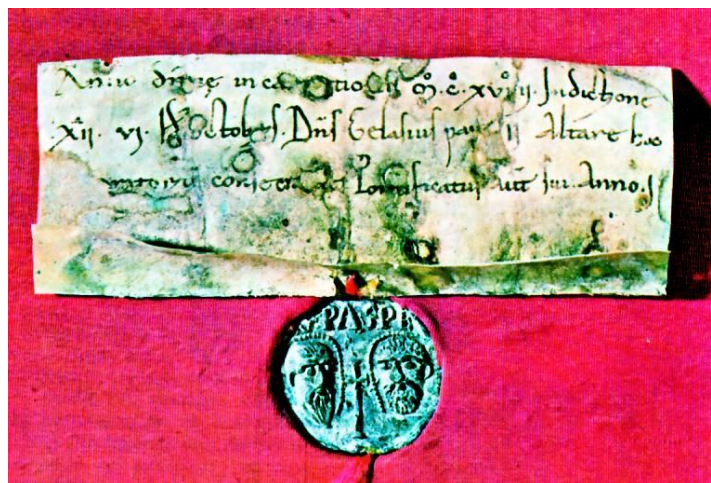 Anno dñicę incarnationis M̊. C̊. XVIII. Indictione
XII. VI. Kł Octobris. Dñs Gelasius papa II Altare hoc
consecravit Pontificatus aut̄ sui Anno. I
SPASPE